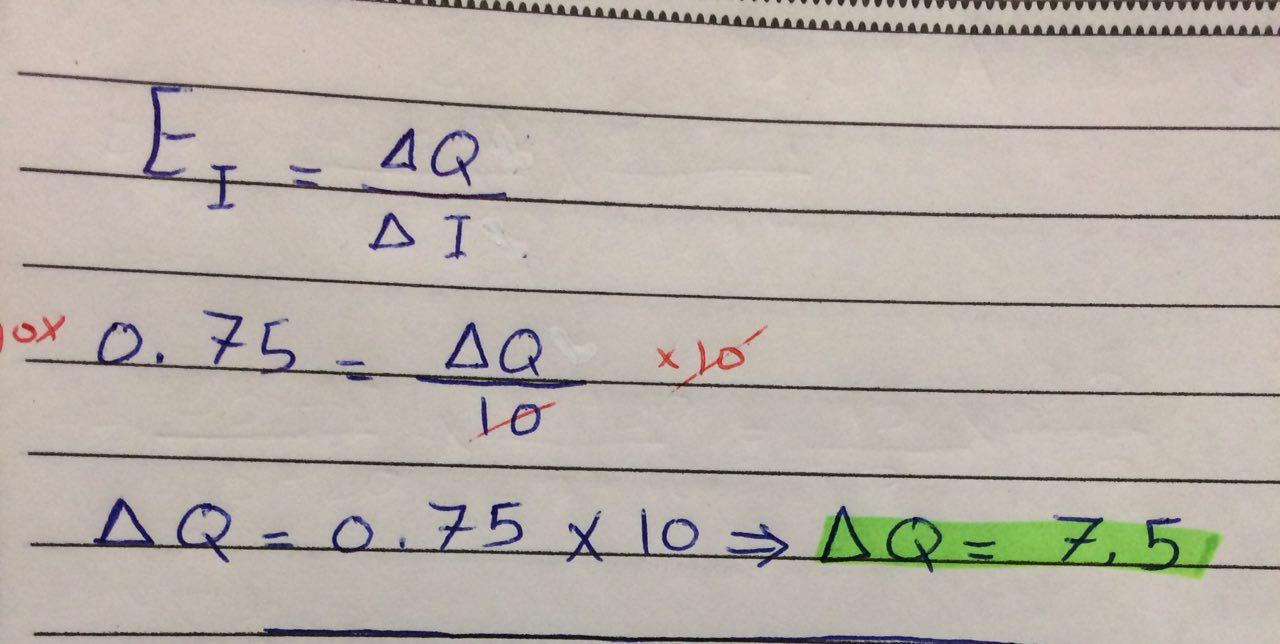 E_I = ΔQ / ΔI
10x 0.75 = ΔQ / 10 x 10
ΔQ = 0.75 x 10 ⇒ ΔQ = 7.5